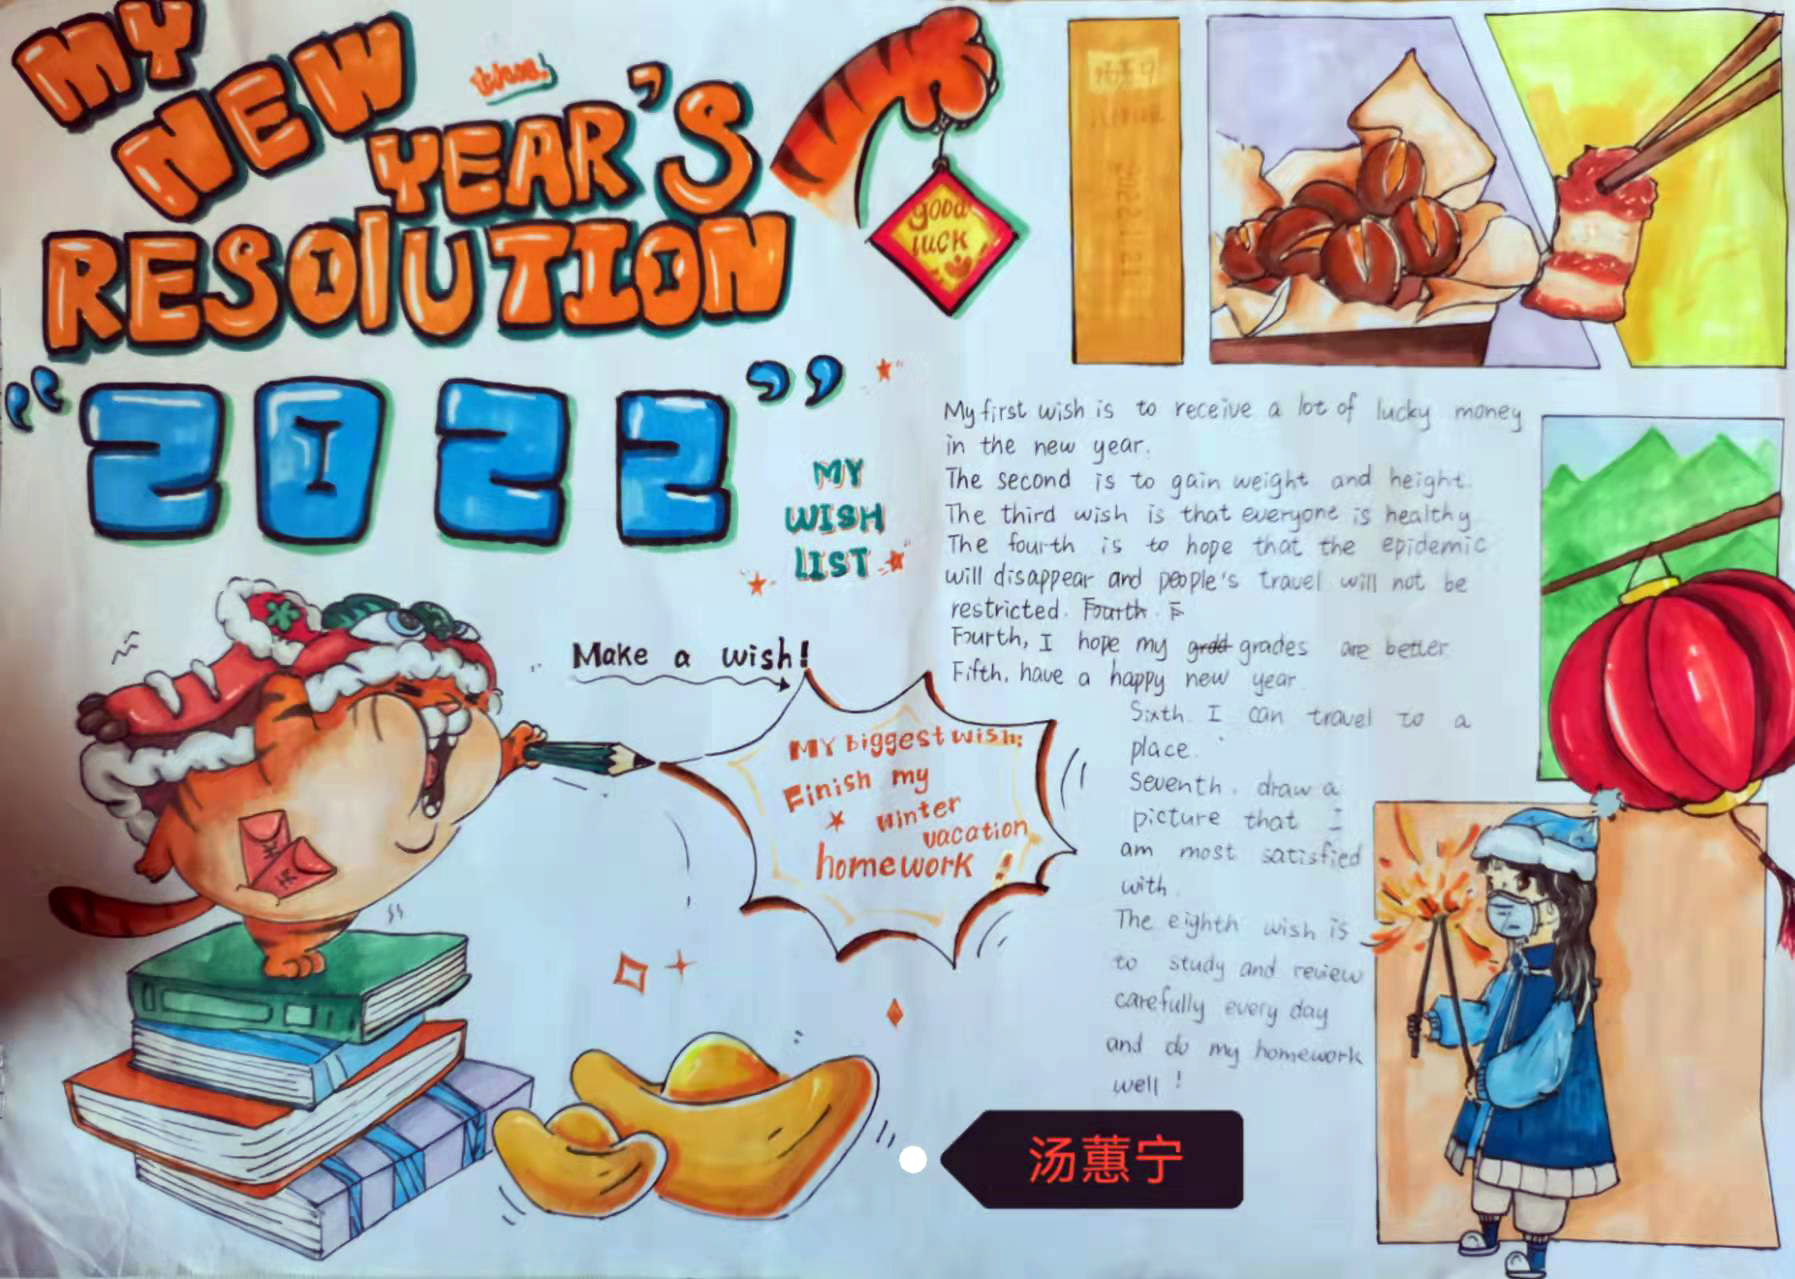 MY
NEW
YEAR'S
RESOLUTION
"2022"
good
luck
2022.1.21
MY
WISH
LIST
My first wish is to receive a lot of lucky money
in the new year.
The second is to gain weight and height.
The third wish is that everyone is healthy
The fourth is to hope that the epidemic
will disappear and people's travel will not be
restricted. Fourth. F
Fourth, I hope my grdd grades are better
Fifth, have a happy new year.
Sixth. I can travel to a
place.
Seventh. draw a
picture that I
am most satisfied
with.
The eighth wish is
to study and review
carefully every day
and do my homework
well!
Make a wish!
MY Biggest wish:
Finish my
winter
vacation
homework!
汤蕙宁